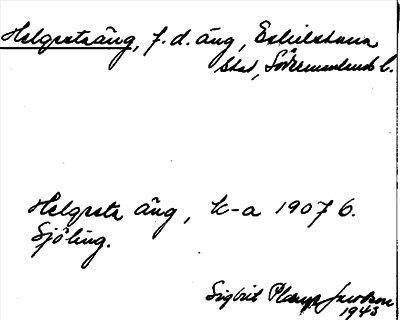 Helgestaäng, f.d. äng, Eskilstuna
stad, Södermanlands l.
Helgesta äng, k-a 1907 6.
Sjöling.
Sigbrit Plænge Jacobson
1943